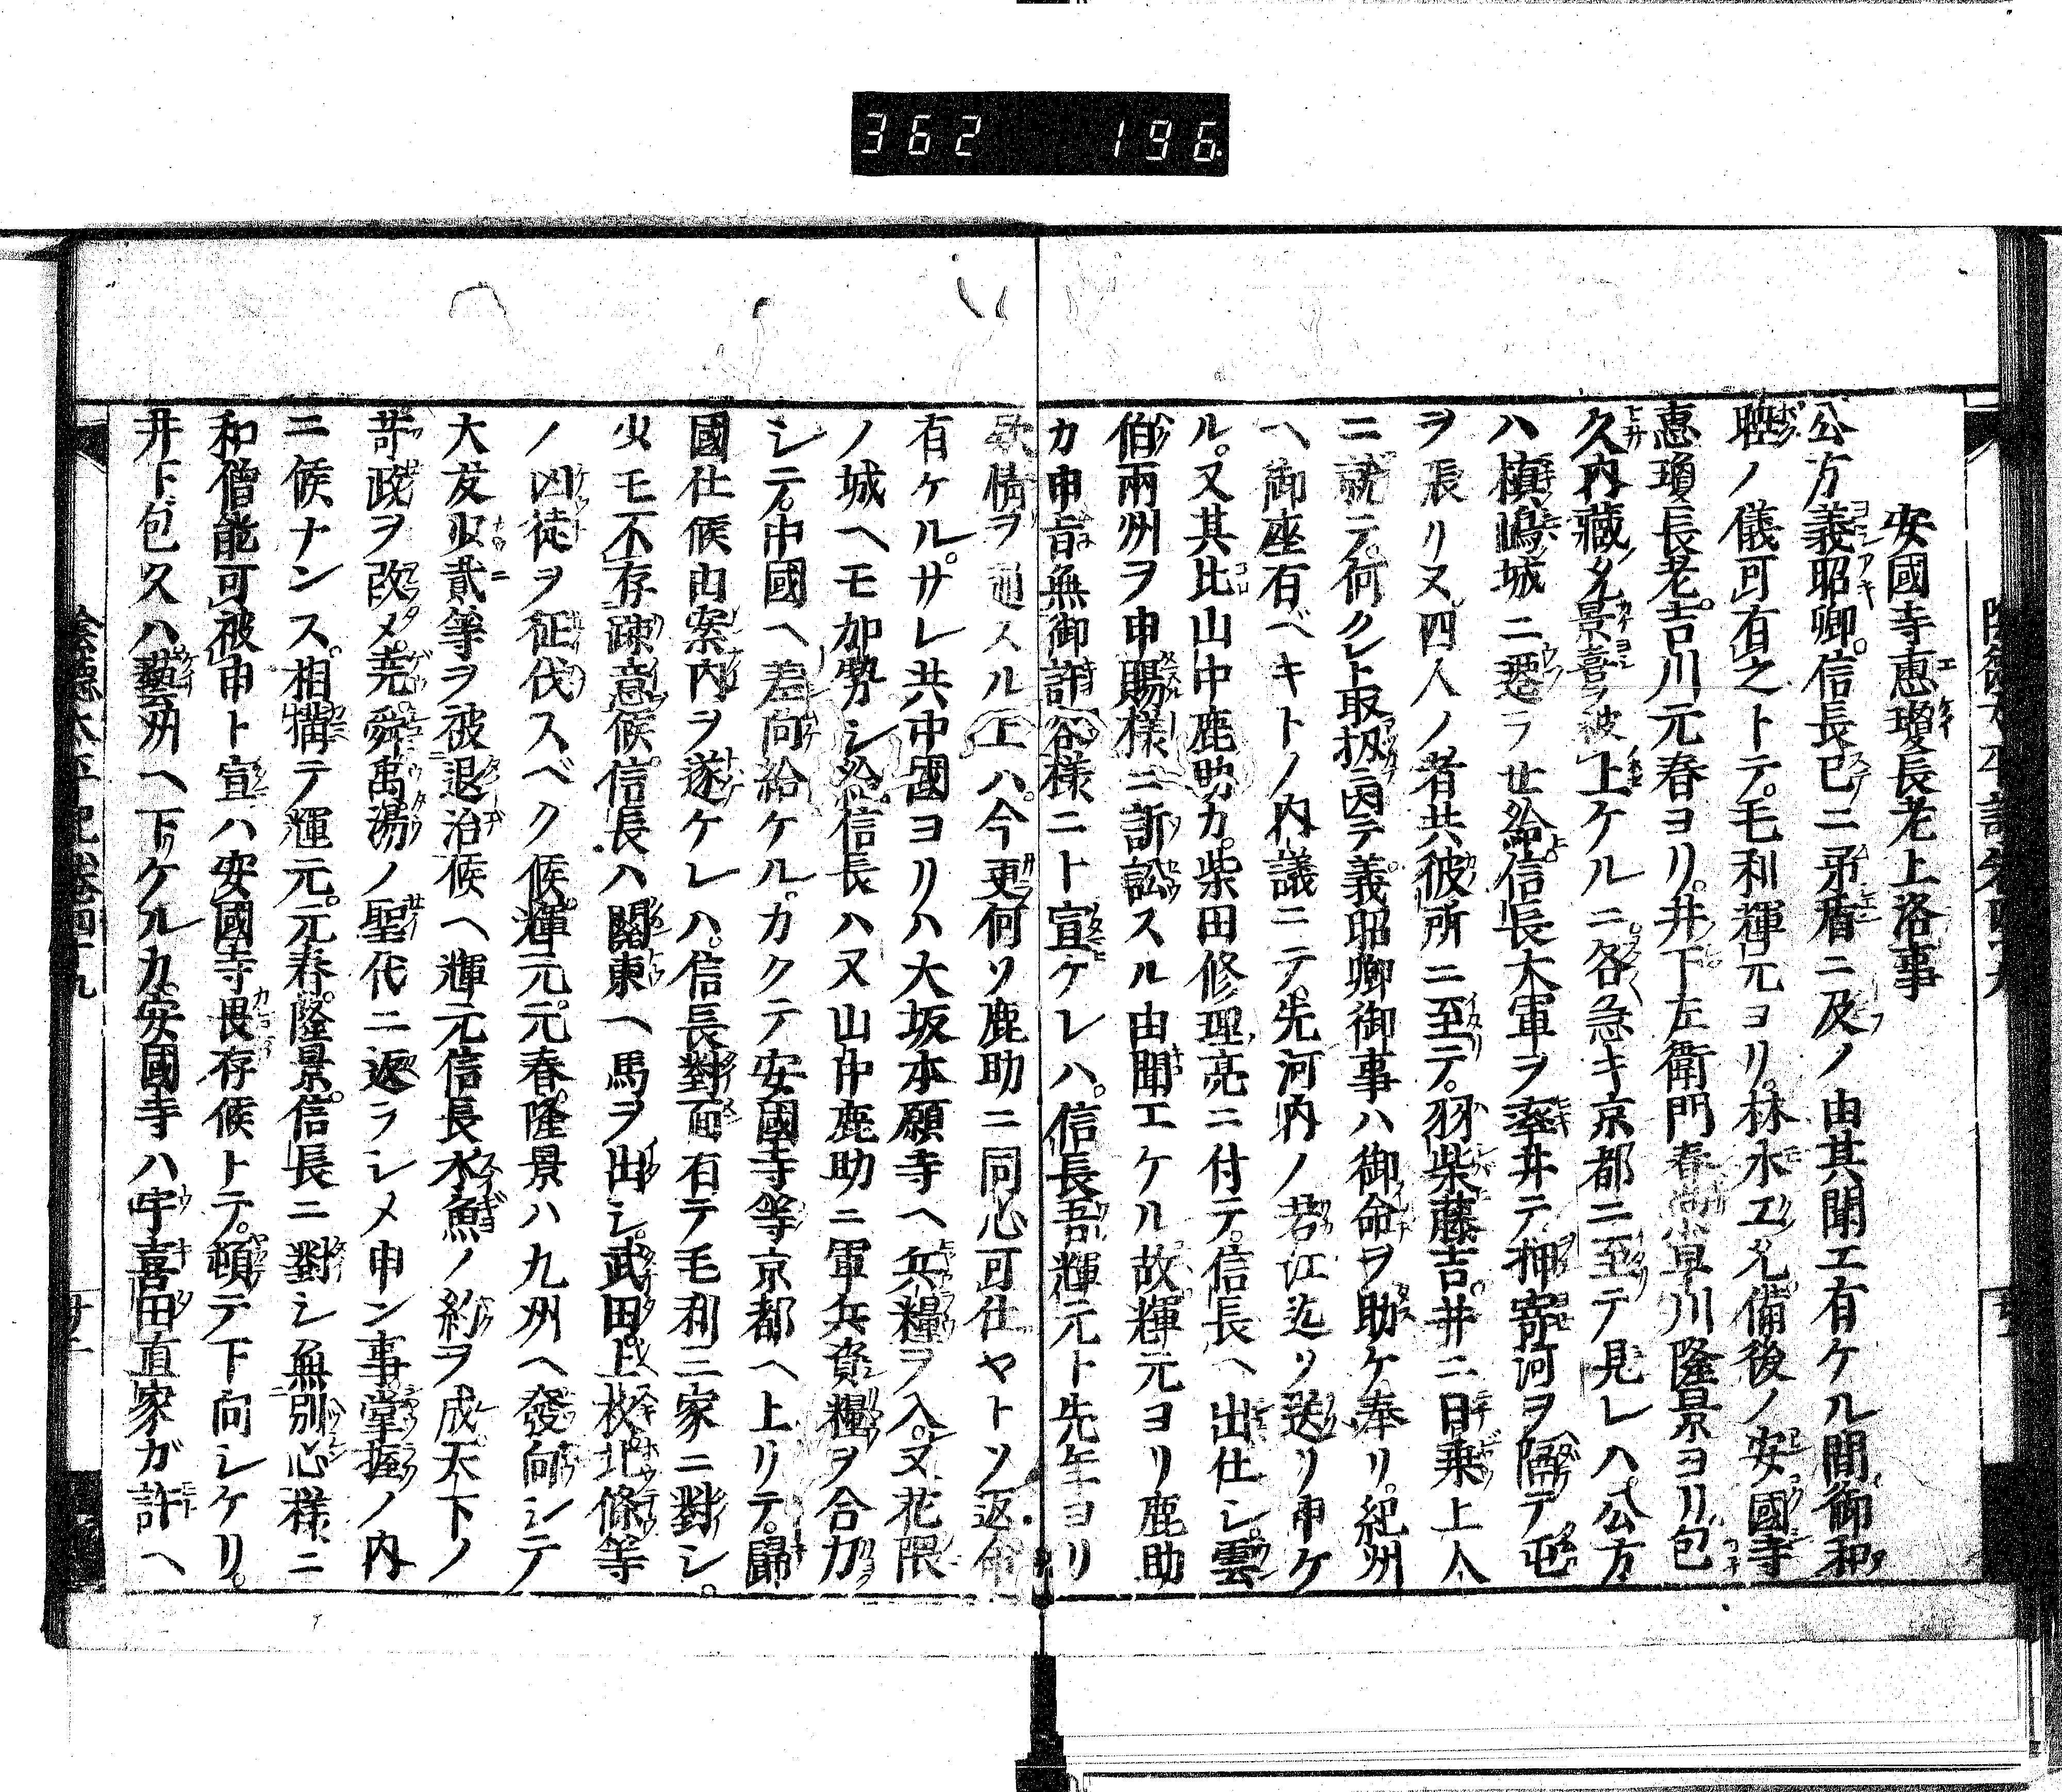 362 196
安國寺惠瓊長老上洛事
公方義昭卿。信長已ニ矛盾ニ及ノ由其聞エ有ケル間御和
睦ノ儀可有之トテ。毛利輝元ヨリ。林木工允備後ノ安國寺
惠瓊長老。吉川元春ヨリ。井下左衛門春 小早川隆景ヨリ包
久内藏允景喜ヲ被上ケルニ。各急キ京都ニ至テ見レハ。公方
ハ槙嶋城ニ遷ラせ給ヒ。信長大軍ヲ率井テ押寄河ヲ隔テ屯
ヲ張リヌ。四人ノ者共彼所ニ至テ。羽柴藤吉。并ニ日乗上人
ニ就テ。何クレト取扱ニ因テ義昭卿御事ハ御命ヲ助ケ奉リ。紀州
ヘ御座有ベキトノ内議ニテ。先河内ノ若江迄ソ送リ申ケ
ル。又其比山中鹿助カ。柴田修理亮ニ付テ。信長ヘ出仕シ。雲
伯兩州ヲ申賜樣ニ訴訟スル由聞エケル。故輝元ヨリ鹿助
カ申旨無御許容樣ニト宣ケレハ。信長吾輝元ト先年ヨリ
歡情ヲ通スル上ハ。今更何ソ鹿助ニ同心可仕ヤトソ返命
有ケル。サレ共中國ヨリハ大坂本願寺ヘ兵糧ヲ入。又花隈
ノ城ヘモ加勢シ給。信長ハ又山中鹿助ニ軍兵資糧ヲ合力
シテ。中國ヘ差向給ケル。カクテ安國寺等京都ヘ上リテ。歸
國仕候由案内ヲ遂ケレハ。信長對面有テ毛利三家ニ對シ。
少モ不存疎意候。信長ハ關東ヘ馬ヲ出シ。武田。上杦。北條等
ノ凶徒ヲ征伐スベク候。輝元。元春。隆景ハ九州ヘ發向シテ
大友少貳等ヲ被退治候ヘ輝元信長水魚ノ約ヲ成天下ノ
苛政ヲ改メ。尭舜禹湯ノ聖代ニ返ラシメ申ン事。掌握ノ内
ニ候ナンス。相搆テ輝元。元春。隆景。信長ニ對シ無別心樣ニ
和僧能可被申ト宣ハ安國寺畏存候トテ。頓テ下向シケリ。
井下包久ハ。藝州ヘ下ケルカ。安國寺ハ宇喜田直家ガ許ヘ